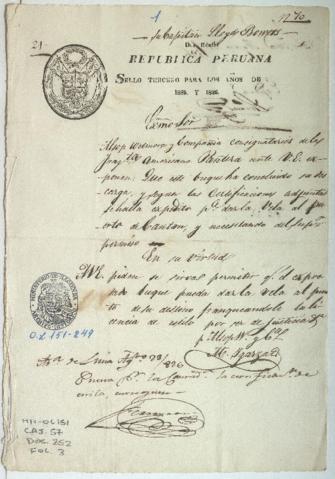 1
N.º 70
su Capitán Lloyd Bowers
Dos Reales
REPUBLICA PERUANA
SELLO TERCERO PARA LOS AÑOS DE
1825 Y 1826.
Exmo Sor
Alsop Wetmore y Compañia consignatarios de la
Frag.ta Americana ante V.E. ex-
ponen: Que este buque ha concluido su des
carga, y segun las Certificaciones adjuntas
se halla expedito p.a dar la Vela al pu
erto de Canton, y necesitando del Supor
permiso
En su virtud
A V.E. piden se sirva permitir q.e el expre
sado buque pueda dar la Vela al puer
to de su destino franqueandole la li
cencia de estilo por ser de justicia &a
p.r Alsop W. y C.a
O.L 151-249
Lima Ag.to 23/826
MH-OL151
CAJ. 57
DOC. 252
FOL. 3